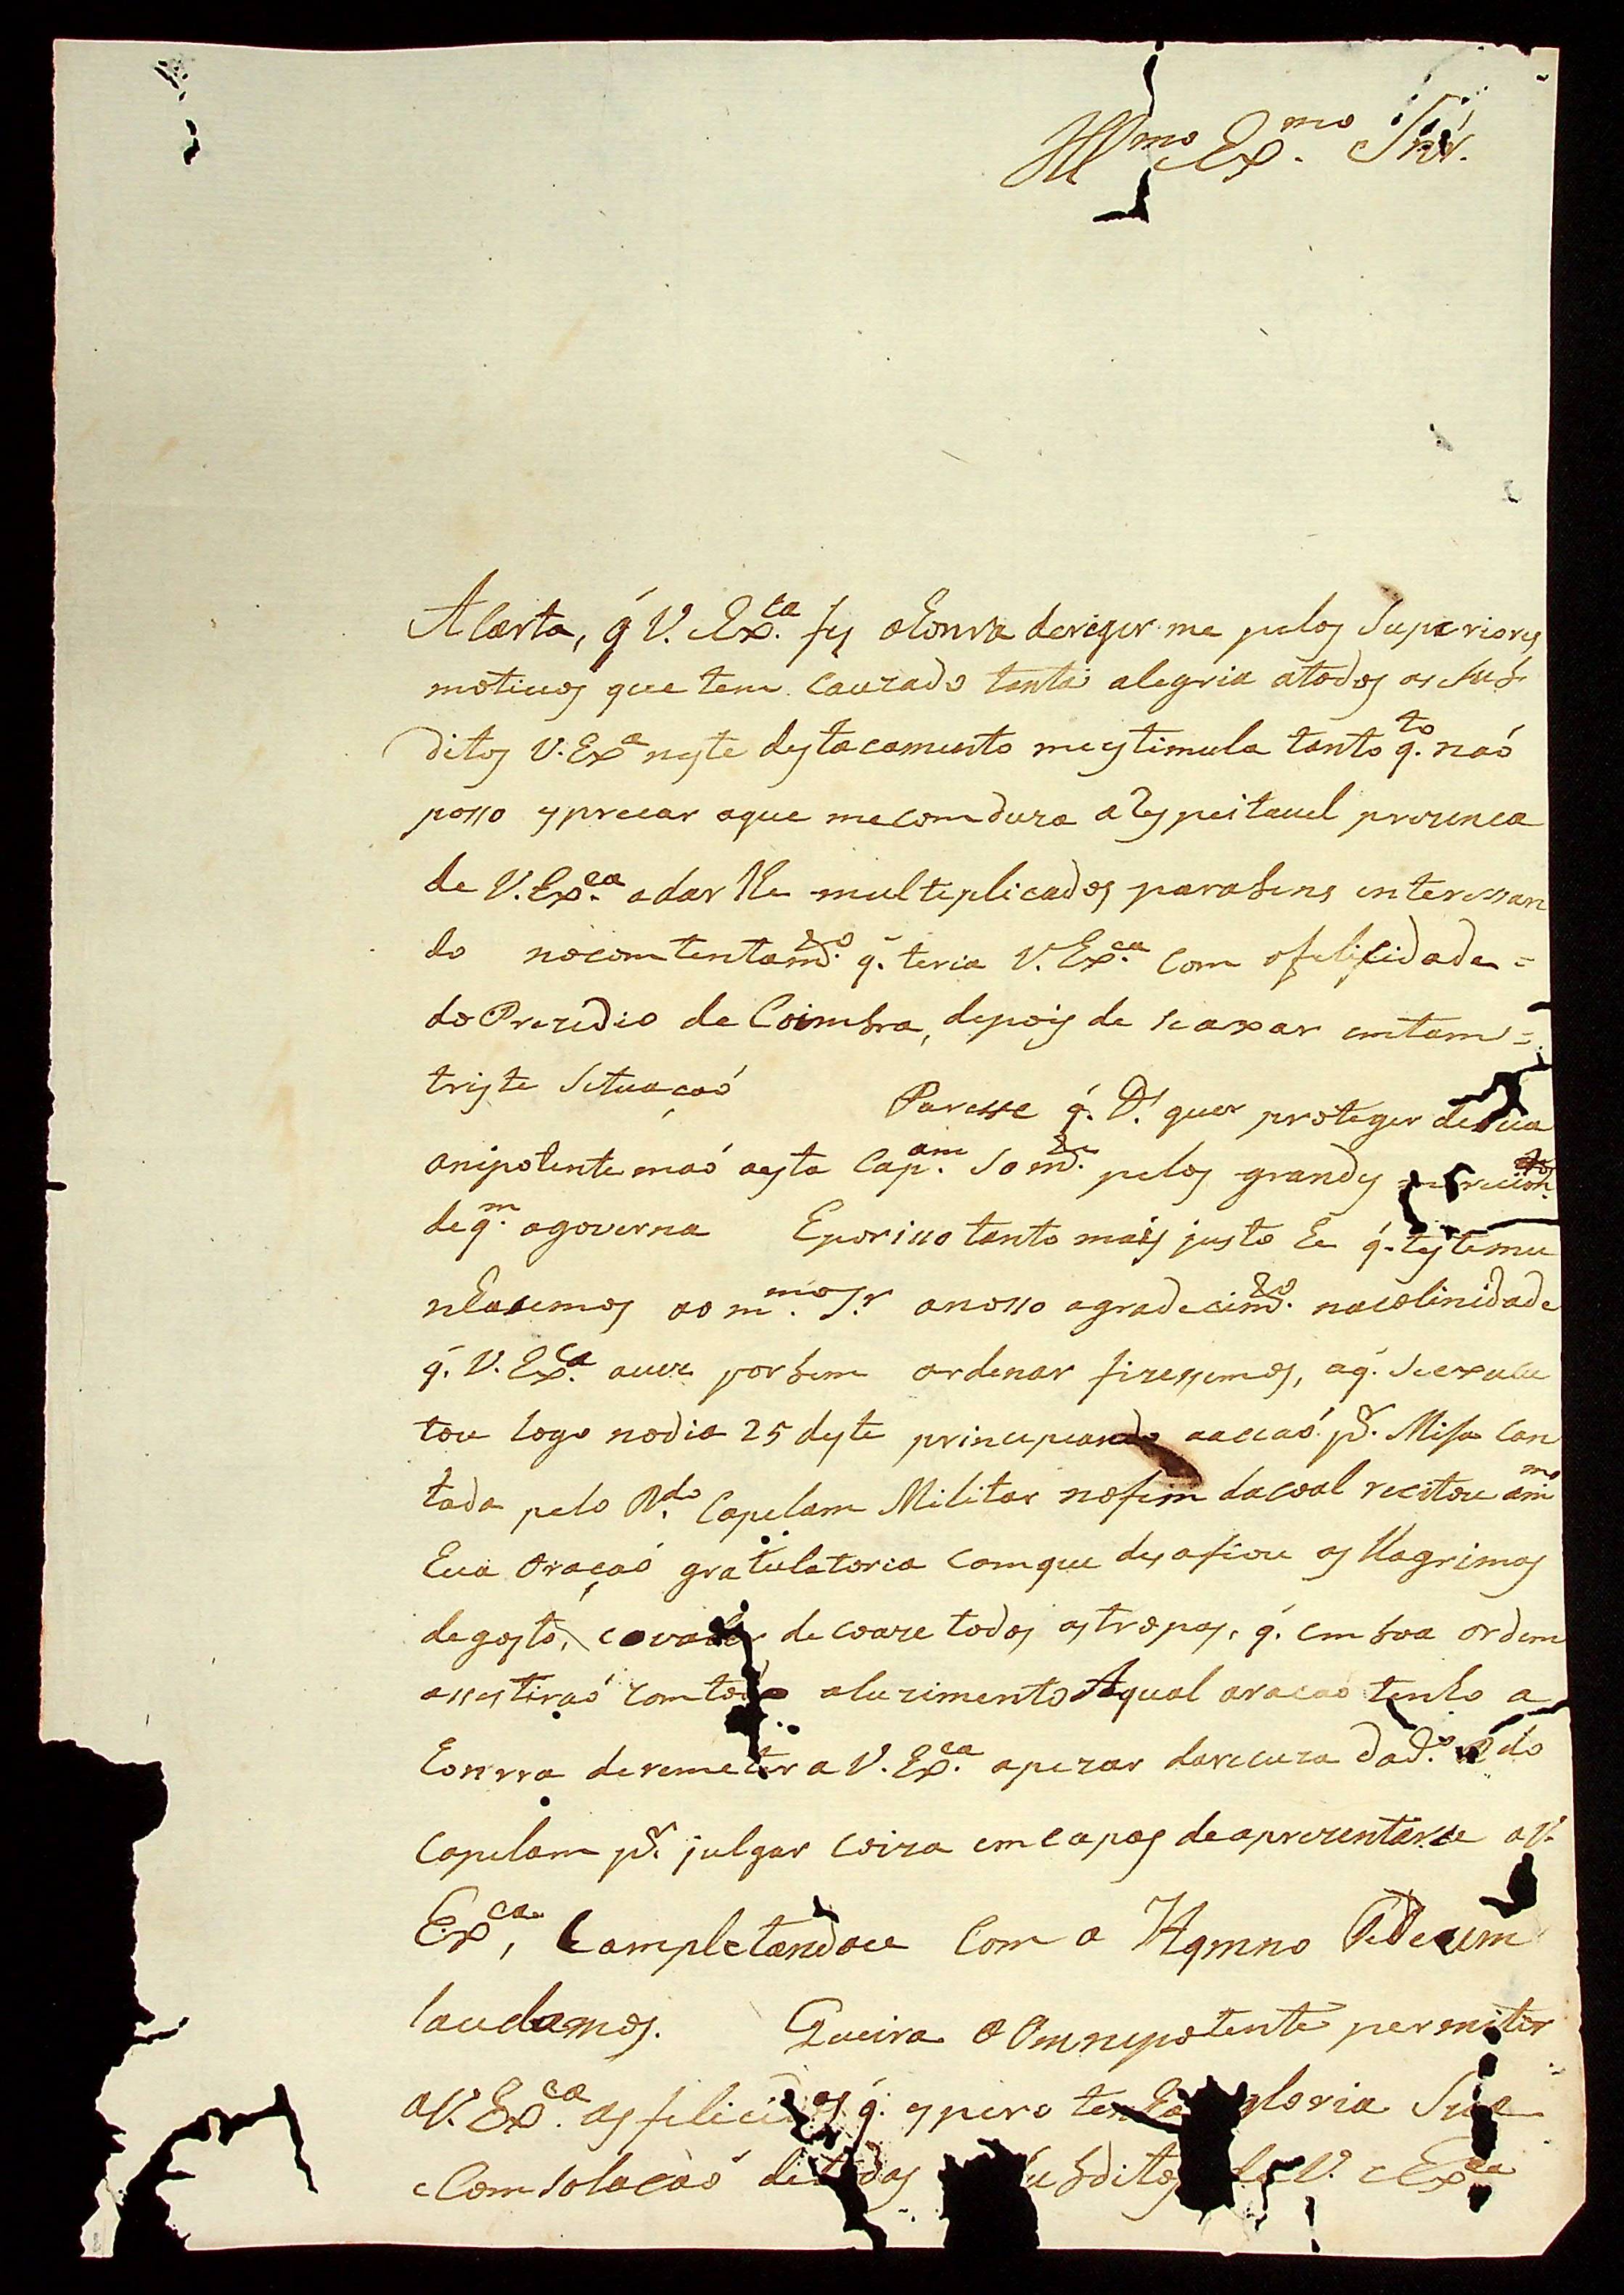 Ill.mo Ex.mo Snr.
A Carta, q̃ V. Ex.ca fes a honrra deriger me pelos Superiores
motivos que tem cauzado tanta alegria atodos os Sub
ditos V. Ex.a neste destacamento me estimula tanto to q. naó
posso espreçar aque mecomduza a Respeitavel prezença
de V. Ex.ca adar lhe multeplicados parabens enteressan
do nocomtentamd.o q̃. teria V. Ex.ca com afelicidade =
do Prezidio de Coimbra, depois de seaxar emtam =
triste Setuaçaó Paresse q̃. D.s quer proteger desua
onipotente maó aesta Cap.am Som.de pelos grandes
de q.m agoverna Eporisso tanto mais justo he q̃. testemu
nhasemos ao m.mo S.r anosso agradecimd.o nacolinidade
q̃. V. Ex.ca ouve porbem ordenar fizessemos, aq̃. seexucu
tou logo nodia 25 deste principiando aaccaó p.r Missa Can
tada pelo R.do Capelam Militar nofim dacoal recitou o mmo
hua Oraçaó gratulatoria comque desafiou as llagrimas
degosto, decoaze todas astropas, q̃. em boa ordem
assestiraó comtodo aluzimento Aqual oracaó tenho a
honrra deremeter a V. Ex.ca apezar darecuza dod.o R.do
Capelam p.r julgar coiza emcapas deaprezentarse a V.
Ex.ca, Completandoce Com o Hymno TeDeum
laudamos. Queira o Omnepotente permiter
aV. Ex.ca as felicid.es q̃. espero tenha gloria Sua
eComsolacaó detodos Subditos de V. Ex.ca